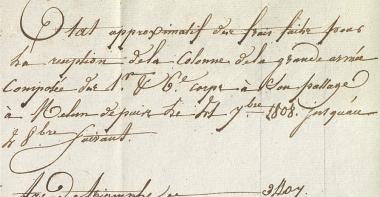 Etat approximatif des frais faits pour
La reception de la Colonne de la grande armée
Composée des 1.er & 6.e corps à Son passage
à Melun depuis le 7.bre 1808. jusqu'au
8.bre suivant.